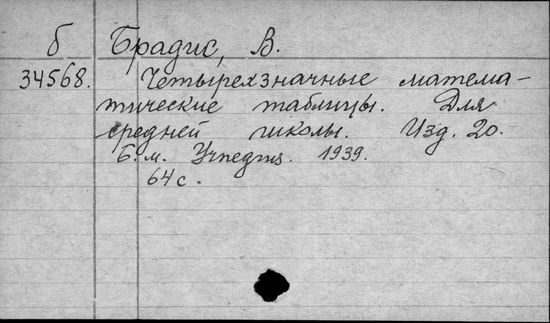 б Брадис, В.
34568. Четырехзначные матема-
тические таблицы. Для
средней школы. Изд. 20.
Б. м. Учпедгиз. 1939.
64 с.